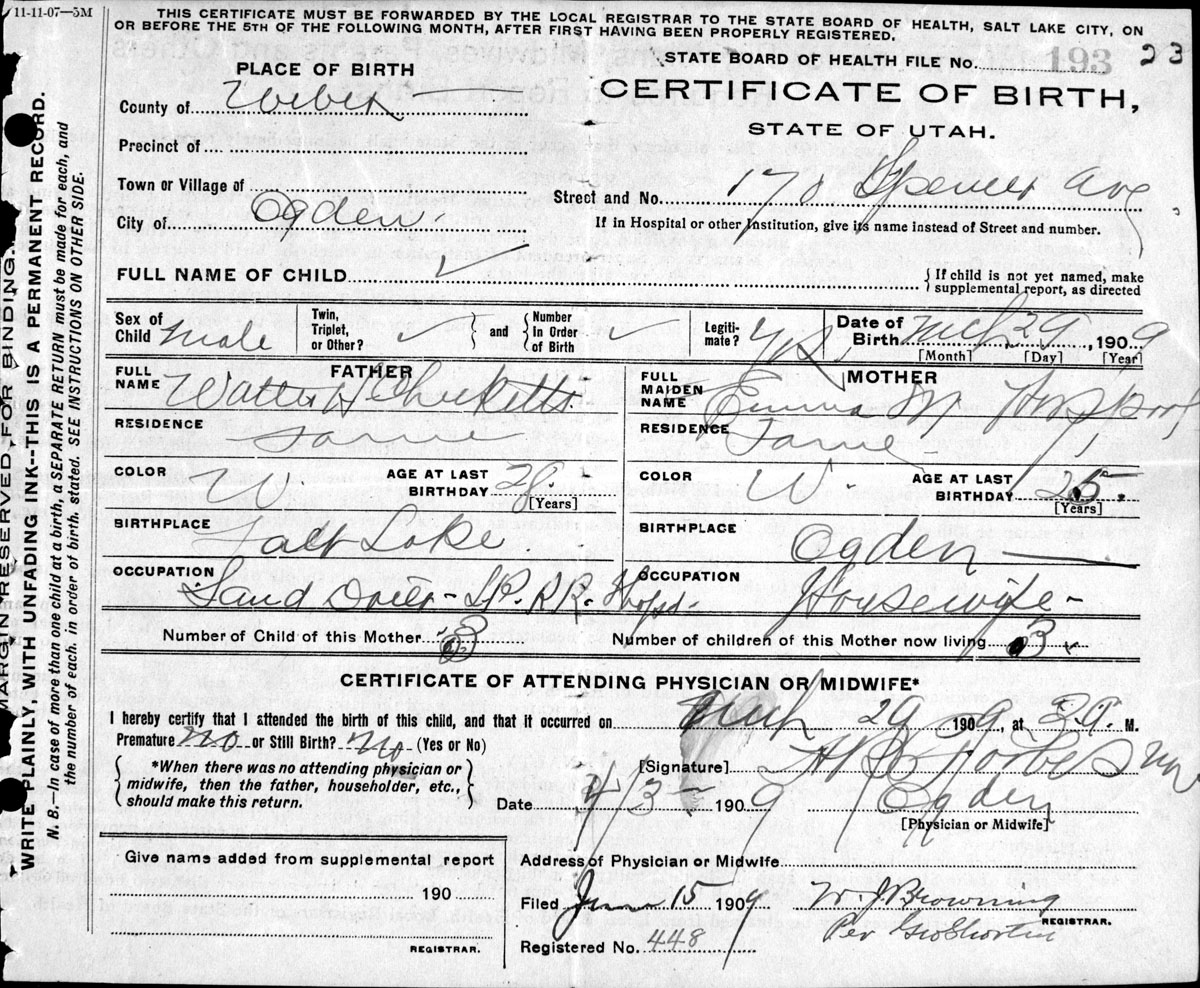 11-11-07—5M
THIS CERTIFICATE MUST BE FORWARDED BY THE LOCAL REGISTRAR TO THE STATE BOARD OF HEALTH, SALT LAKE CITY, ON
OR BEFORE THE 5TH OF THE FOLLOWING MONTH, AFTER FIRST HAVING BEEN PROPERLY REGISTERED.
STATE BOARD OF HEALTH FILE No. 193 23
PLACE OF BIRTH
CERTIFICATE OF BIRTH,
STATE OF UTAH.
County of Weber
Precinct of
Town or Village of
Street and No. 170 Spencer Ave
City of Ogden
If in Hospital or other Institution, give its name instead of Street and number.
FULL NAME OF CHILD
If child is not yet named, make
supplemental report, as directed
Sex of Child Male
Twin, Triplet, or Other?
and
Number In Order of Birth
Legitimate? Yes
Date of Birth Mch 29, 1909
[Month] [Day] [Year]
FATHER
FULL NAME Walter H Checketts
MOTHER
FULL MAIDEN NAME Emma M
RESIDENCE Same
RESIDENCE Same
COLOR W AGE AT LAST BIRTHDAY 28 [Years]
COLOR W. AGE AT LAST BIRTHDAY 25. [Years]
BIRTHPLACE Salt Lake
BIRTHPLACE Ogden
OCCUPATION Sand Drier - S.P. RR. Shops.
OCCUPATION Housewife
Number of Child of this Mother 3
Number of children of this Mother now living 3
CERTIFICATE OF ATTENDING PHYSICIAN OR MIDWIFE*
I hereby certify that I attended the birth of this child, and that it occurred on Mch 29 1909, at 3 a. M.
Premature no or Still Birth? no (Yes or No)
*When there was no attending physician or
midwife, then the father, householder, etc.,
should make this return.
[Signature] Forbes MD
Date 4/3 1909 Ogden
[Physician or Midwife]
Give name added from supplemental report
190
REGISTRAR.
Address of Physician or Midwife
Filed June 15 1909 W. J. Browning
REGISTRAR.
Per Geo Shorten
Registered No. 448
MARGIN RESERVED FOR BINDING.
WRITE PLAINLY, WITH UNFADING INK--THIS IS A PERMANENT RECORD.
N. B.—In case of more than one child at a birth, a SEPARATE RETURN must be made for each, and
the number of each, in order of birth, stated. SEE INSTRUCTIONS ON OTHER SIDE.